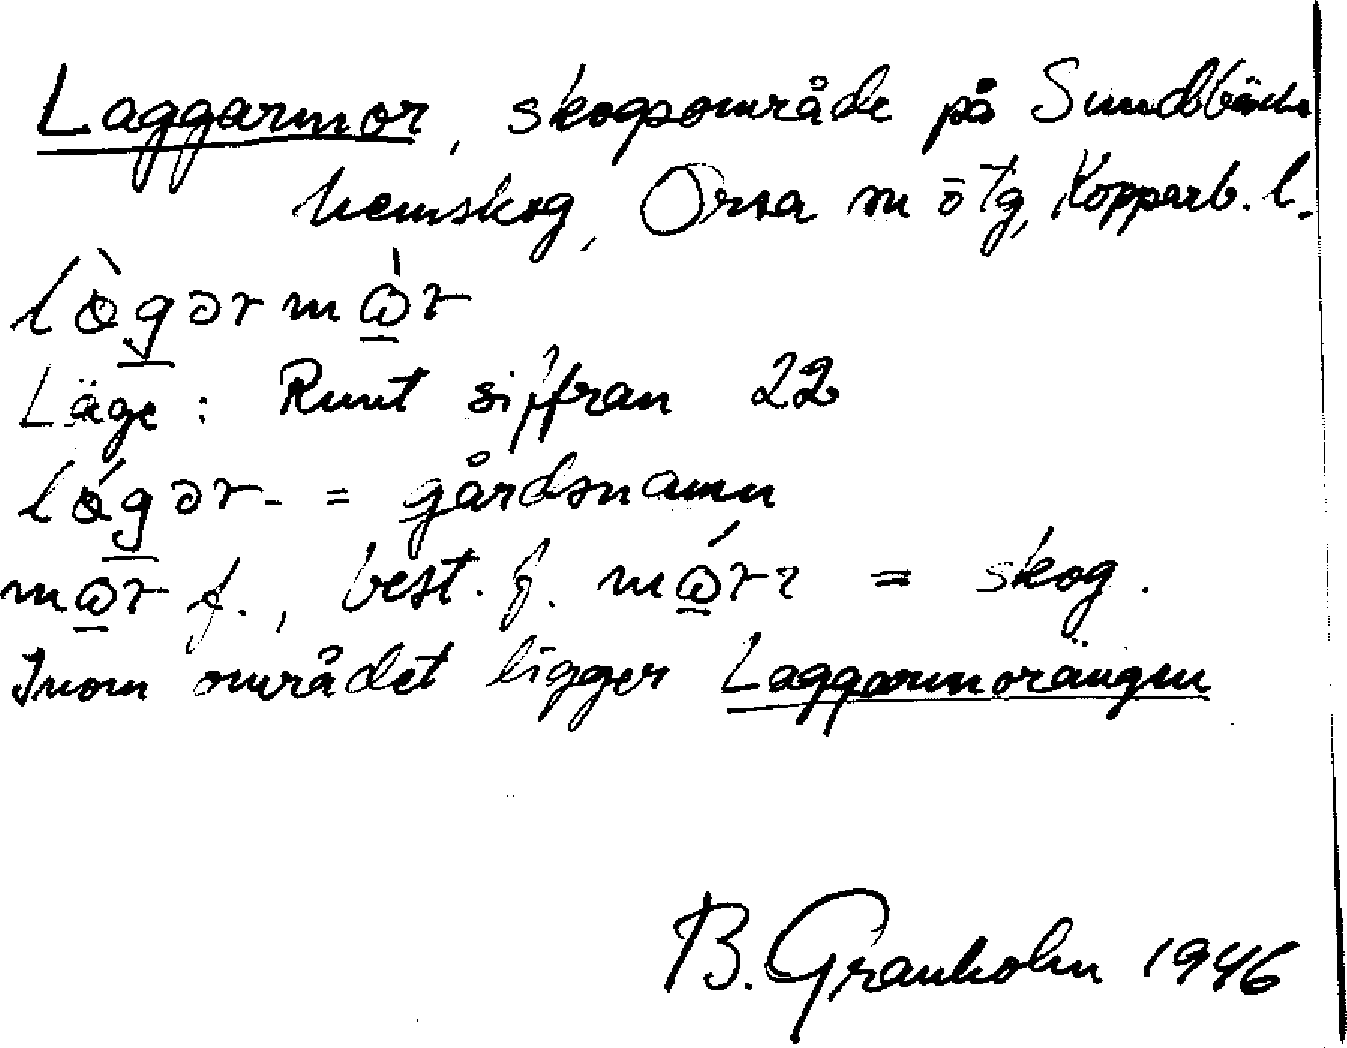 Laggarmor, skogsområde på Sundbäcks
hemskog, Orsa sn ö Tg, Kopparb. l.
Läge: Runt siffran 22
= gårdsnamn
f., best. f. = skog.
Inom området ligger Laggarmorängen
B. Granholm 1946